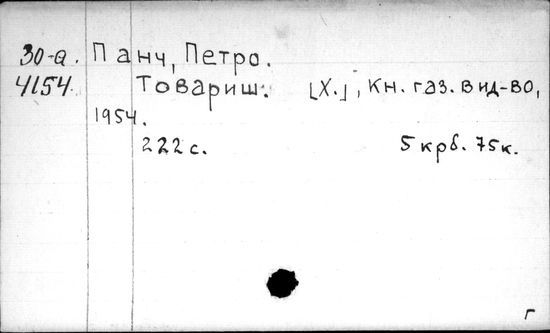 30-а. Панч, Петро.
4154. Товариш. [Х.], Кн. газ. вид-во,
1954.
222 с. 5 крб. 75к.
г